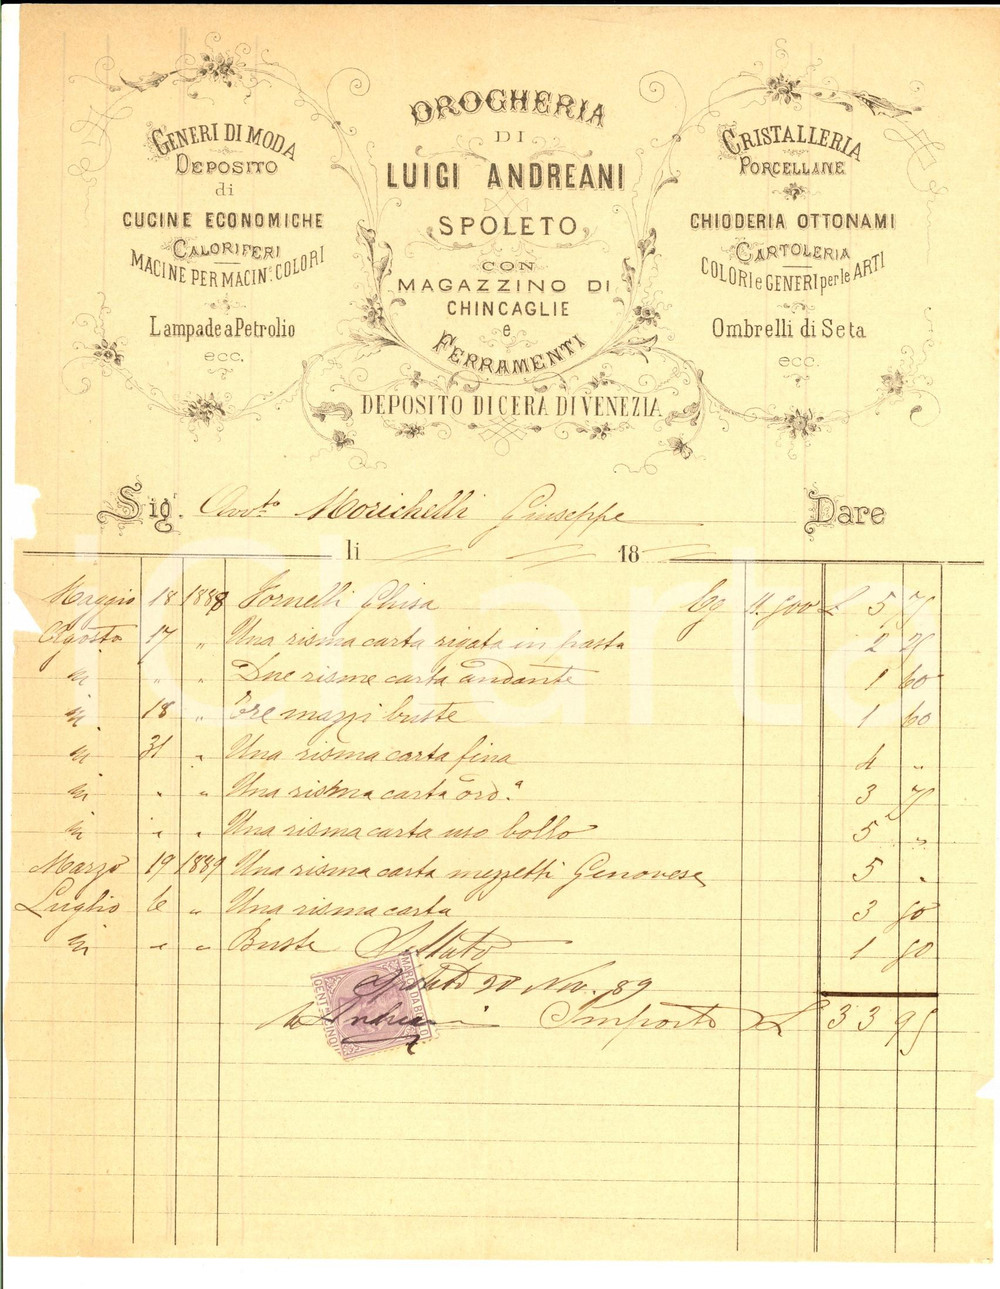 GENERI DI MODA
DEPOSITO
di
CUCINE ECONOMICHE
CALORIFERI
MACINE PER MACIN: COLORI
Lampade a Petrolio
ecc.
DROGHERIA
DI
LUIGI ANDREANI
SPOLETO
CON
MAGAZZINO DI
CHINCAGLIE
e
FERRAMENTI
DEPOSITO DI CERA DI VENEZIA
CRISTALLERIA
PORCELLANE
CHIODERIA OTTONAMI
CARTOLERIA
COLORI e GENERI per le ARTI
Ombrelli di Seta
ecc.
Sig.r Avv.to Morichelli Giuseppe Dare
li 18
Maggio 18 1888 Fornelli Ghisa Cg 11.500 L 5 75
Agosto 17 " Una risma carta rigata in pasta 2 25
" " Due risme carta andante 1 60
18 " Tre mazzi buste 1 60
31 " Una risma carta fina 4 "
" " Una risma carta ord.a 3 75
" " Una risma carta uso bollo 5 "
Marzo 19 1889 Una risma carta mezzetti Genovese 5 "
Luglio 6 " Una risma carta 3 50
" " Buste 1 50
Saldato
Spoleto 20 Nov. 89
Andreani Importo L 33 95
MARCA DA BOLLO
CENT. CINQUE
iCharta